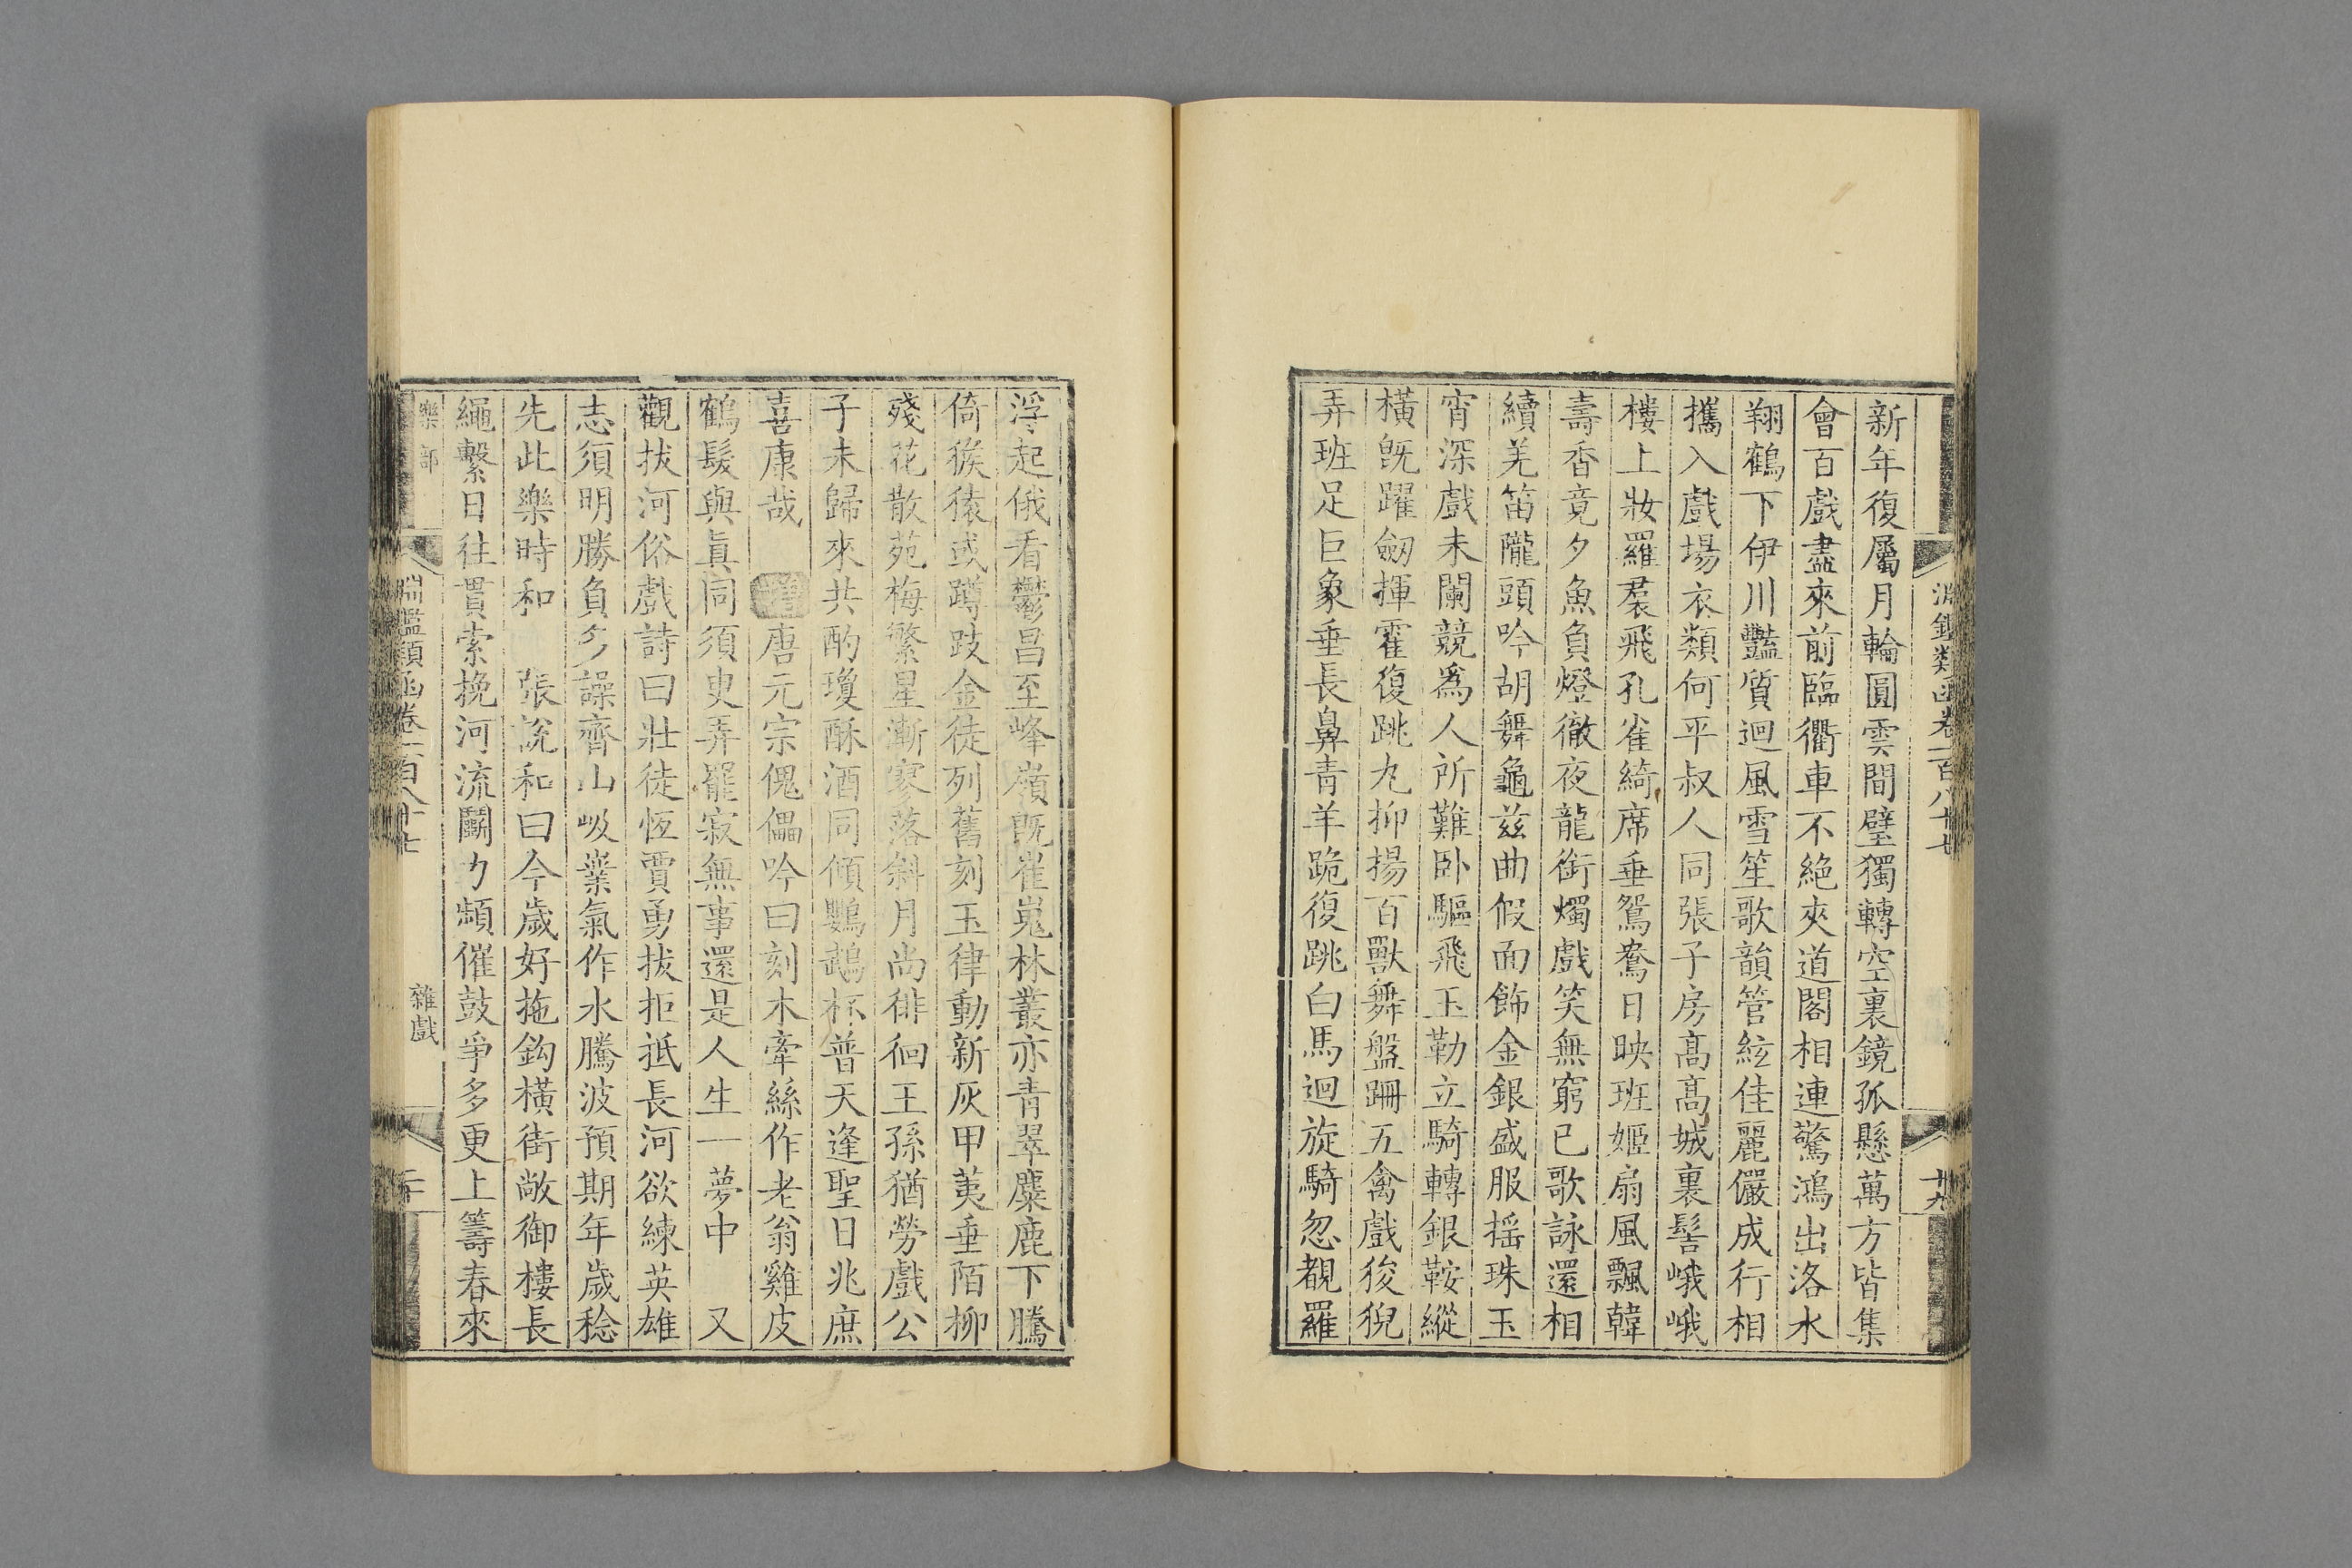 淵鑑類函卷一百八十七
十九
新年復屬月輪圓雲間璧獨轉空裏鏡孤懸萬方皆集
會百戲盡來前臨衢車不絕夾道閣相連驚鴻出洛水
翔鶴下伊川豔質迴風雪笙歌韻管絃佳麗儼成行相
攜入戲場衣類何平叔人同張子房高高城裏髻峨峨
樓上妝羅裙飛孔雀綺席垂鴛鴦日映班姬扇風飄韓
壽香竟夕魚負燈徹夜龍銜燭戲笑無窮已歌詠還相
續羌笛隴頭吟胡舞龜茲曲假面飾金銀盛服搖珠玉
宵深戲未闌競為人所難臥驅飛玉勒立騎轉銀鞍縱
橫旣躍劒揮霍復跳丸抑揚百獸舞盤跚五禽戲狻猊
弄班足巨象垂長鼻青羊跪復跳白馬迴旋騎忽覩羅
浮起俄看鬱昌至峰嶺旣崔嵬林叢亦青翠麋鹿下騰
倚猴猿或蹲跂金徒列舊刻玉律動新灰甲荑垂陌柳
殘花散苑梅繁星漸寥落斜月尚徘徊王孫猶勞戲公
子未歸來共酌瓊酥酒同傾鸚鵡杯普天逢聖日兆庶
喜康哉　增唐元宗傀儡吟曰刻木牽絲作老翁雞皮
鶴髮與眞同須臾弄罷寂無事還是人生一夢中　又
觀拔河俗戲詩曰壯徒恆賈勇拔拒抵長河欲練英雄
志須明勝負多譟齊山岌嶪氣作水騰波預期年歲稔
先此樂時和　張說和曰今歲好拖鈎橫街敞御樓長
繩繫日往貫索挽河流鬭力頻催鼓爭多更上籌春來
樂部
淵鑑類函卷一百八十七
雜戲
二十